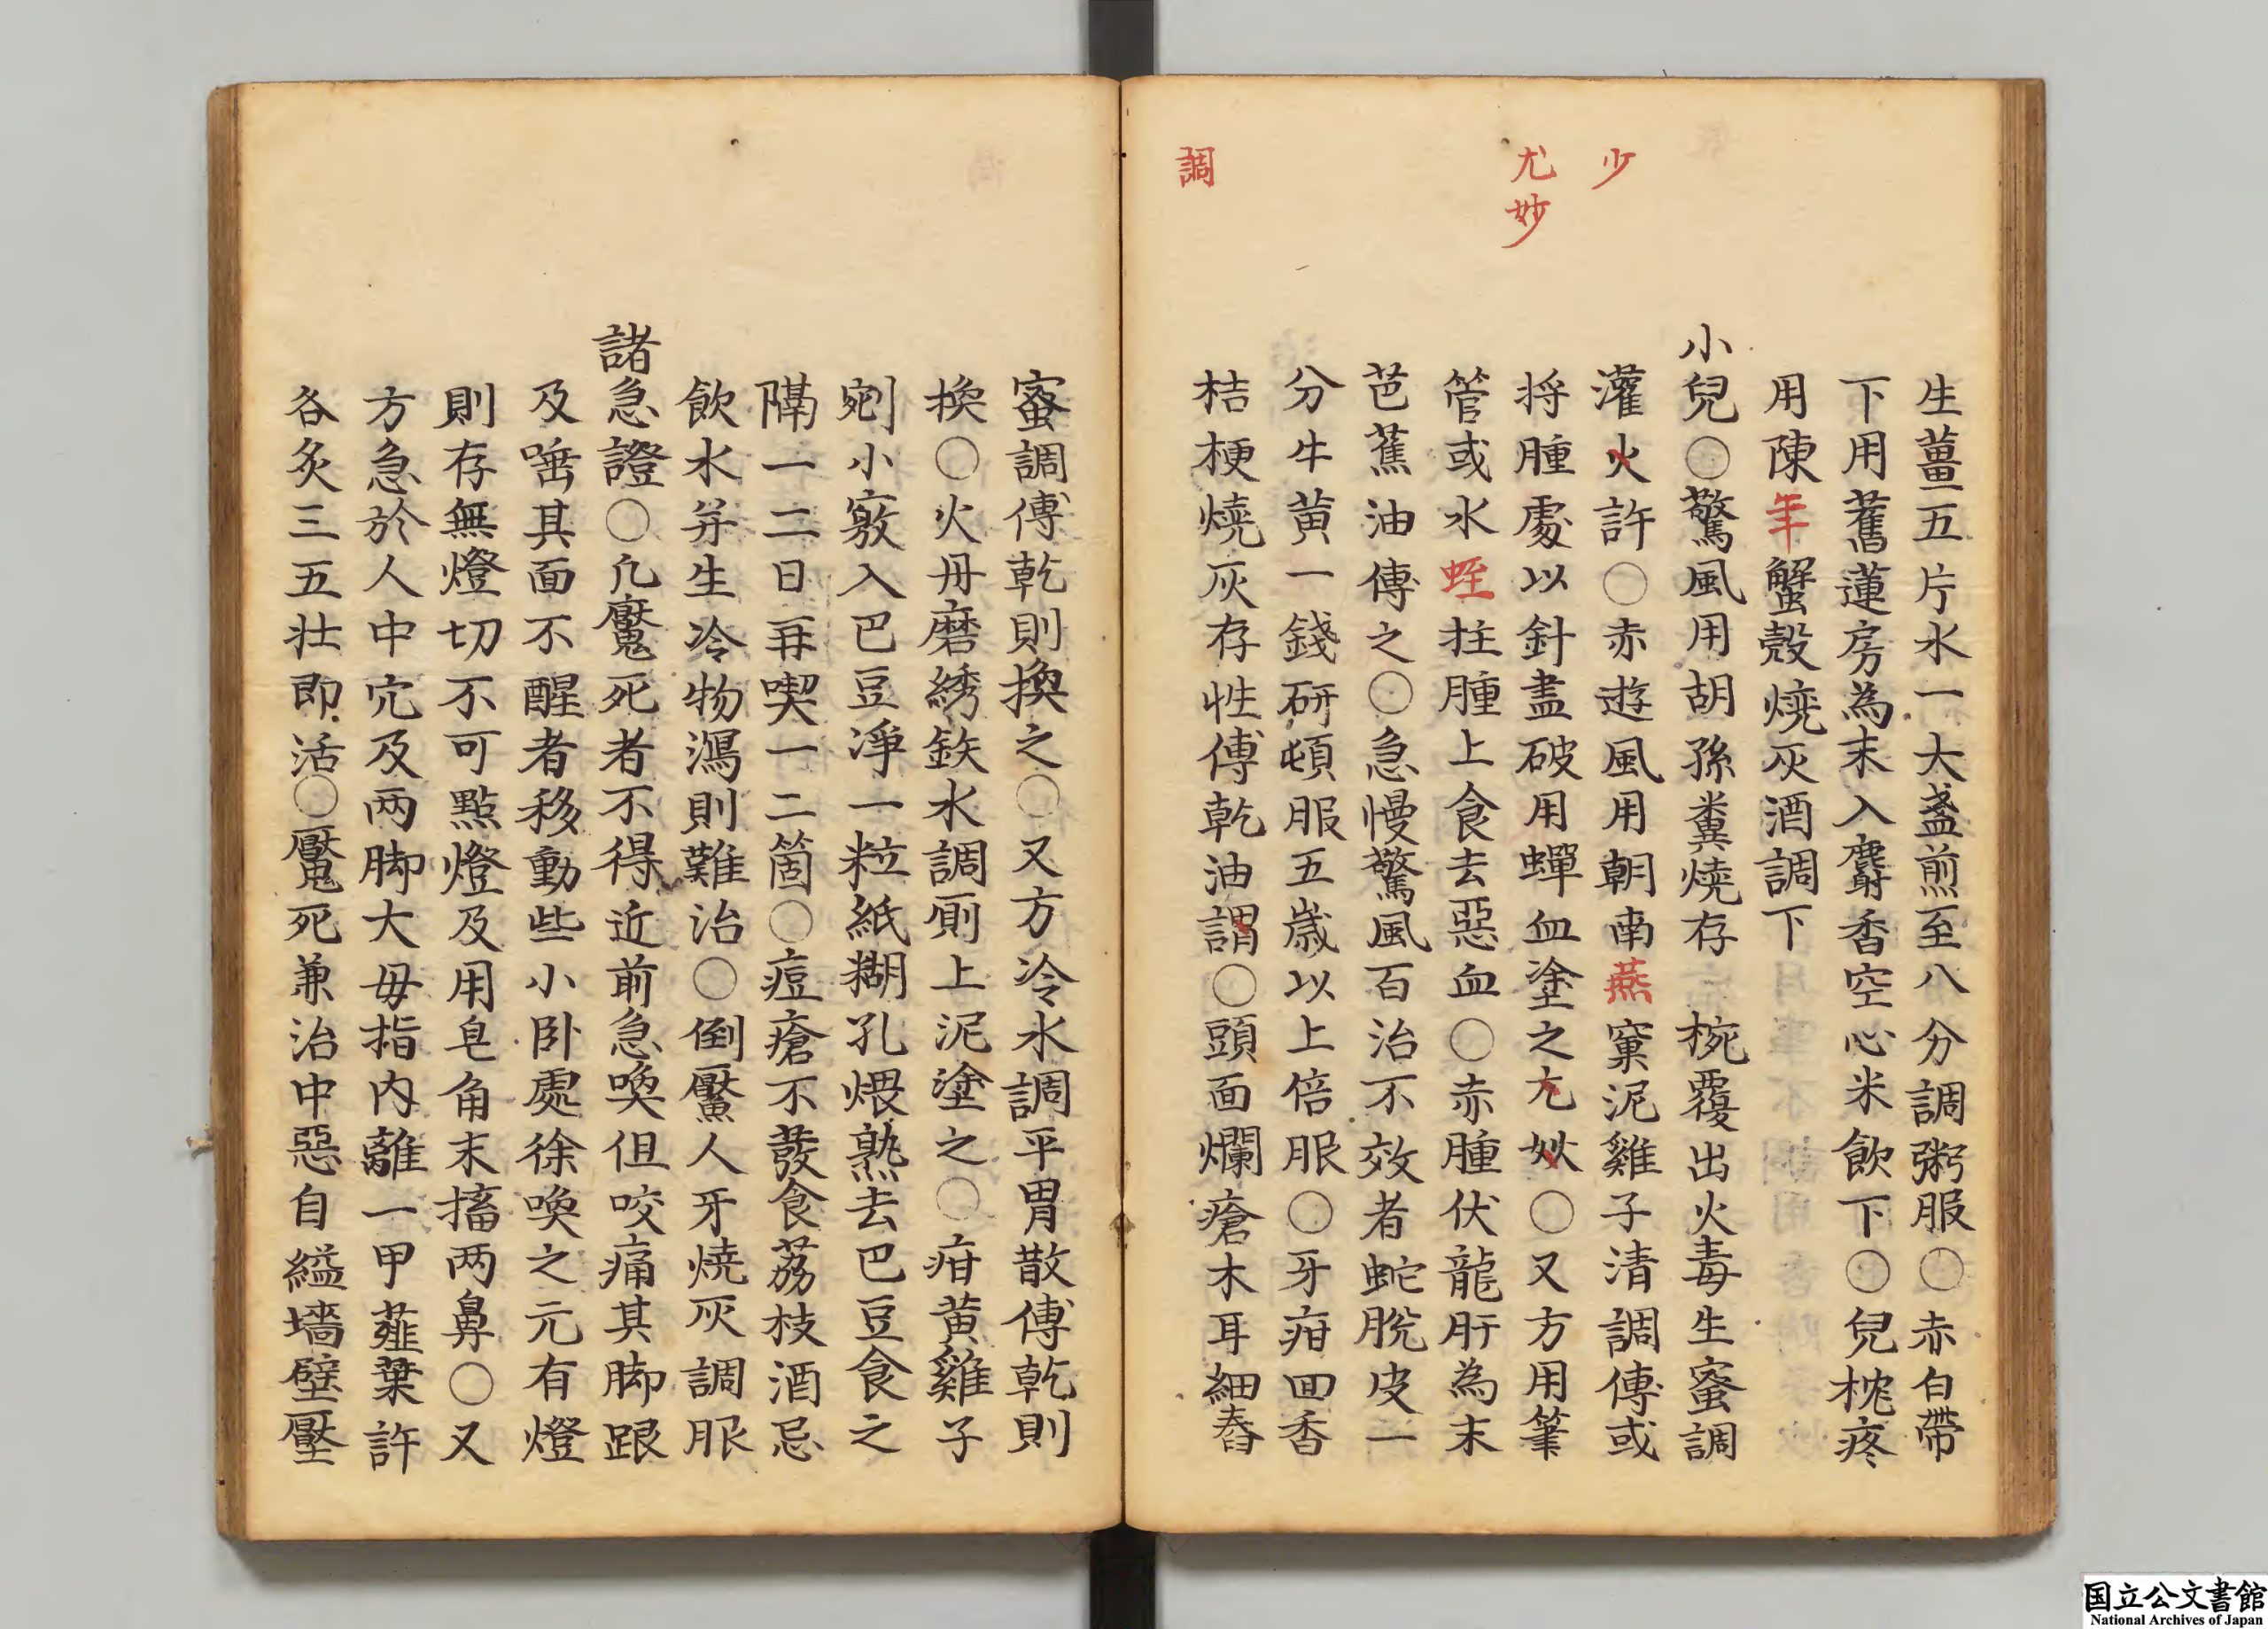 生薑五片水一大盞煎至八分調粥服○赤白帶
下用舊蓮房為末入麝香空心米飲下○兒枕疼
用陳年蟹殼燒灰酒調下
小兒○驚風用胡孫糞燒存 椀覆出火毒生蜜調
少
灌火許○赤遊風用朝南燕窠泥雞子清調傅或
尤妙
将腫處以針盡破用蟬血塗之尢妙○又方用筆
管或水蛭拄腫上食去惡血○赤腫伏龍肝為末
芭蕉油傅之○急慢驚風百治不效者蛇脫皮一
分牛黃一錢研頓服五歲以上倍服○牙疳茴香
調
桔梗燒灰存性傅乾油謂○頭面爛瘡木耳細舂
蜜調傅乾則換之○又方冷水調平胃散傅乾則
換○火丹磨綉鉄水調厠上泥塗之○疳黃雞子
剜小竅入巴豆淨一粒紙糊孔煨熟去巴豆食之
隔一二日再喫一二箇○痘瘡不發食荔枝酒忌
飲水并生冷物瀉則難治○倒黶人牙燒灰調服
諸急證○凡魘死者不得近前急喚但咬痛其脚跟
及唾其面不醒者移動些小卧處徐喚之元有燈
則存無燈切不可點燈及用皂角末搐两鼻○又
方急於人中穴及两脚大毋指內離一甲薤葉許
各炙三五壮即活○魘死兼治中惡自縊墻壁壓
国立公文書館
National Archives of Japan